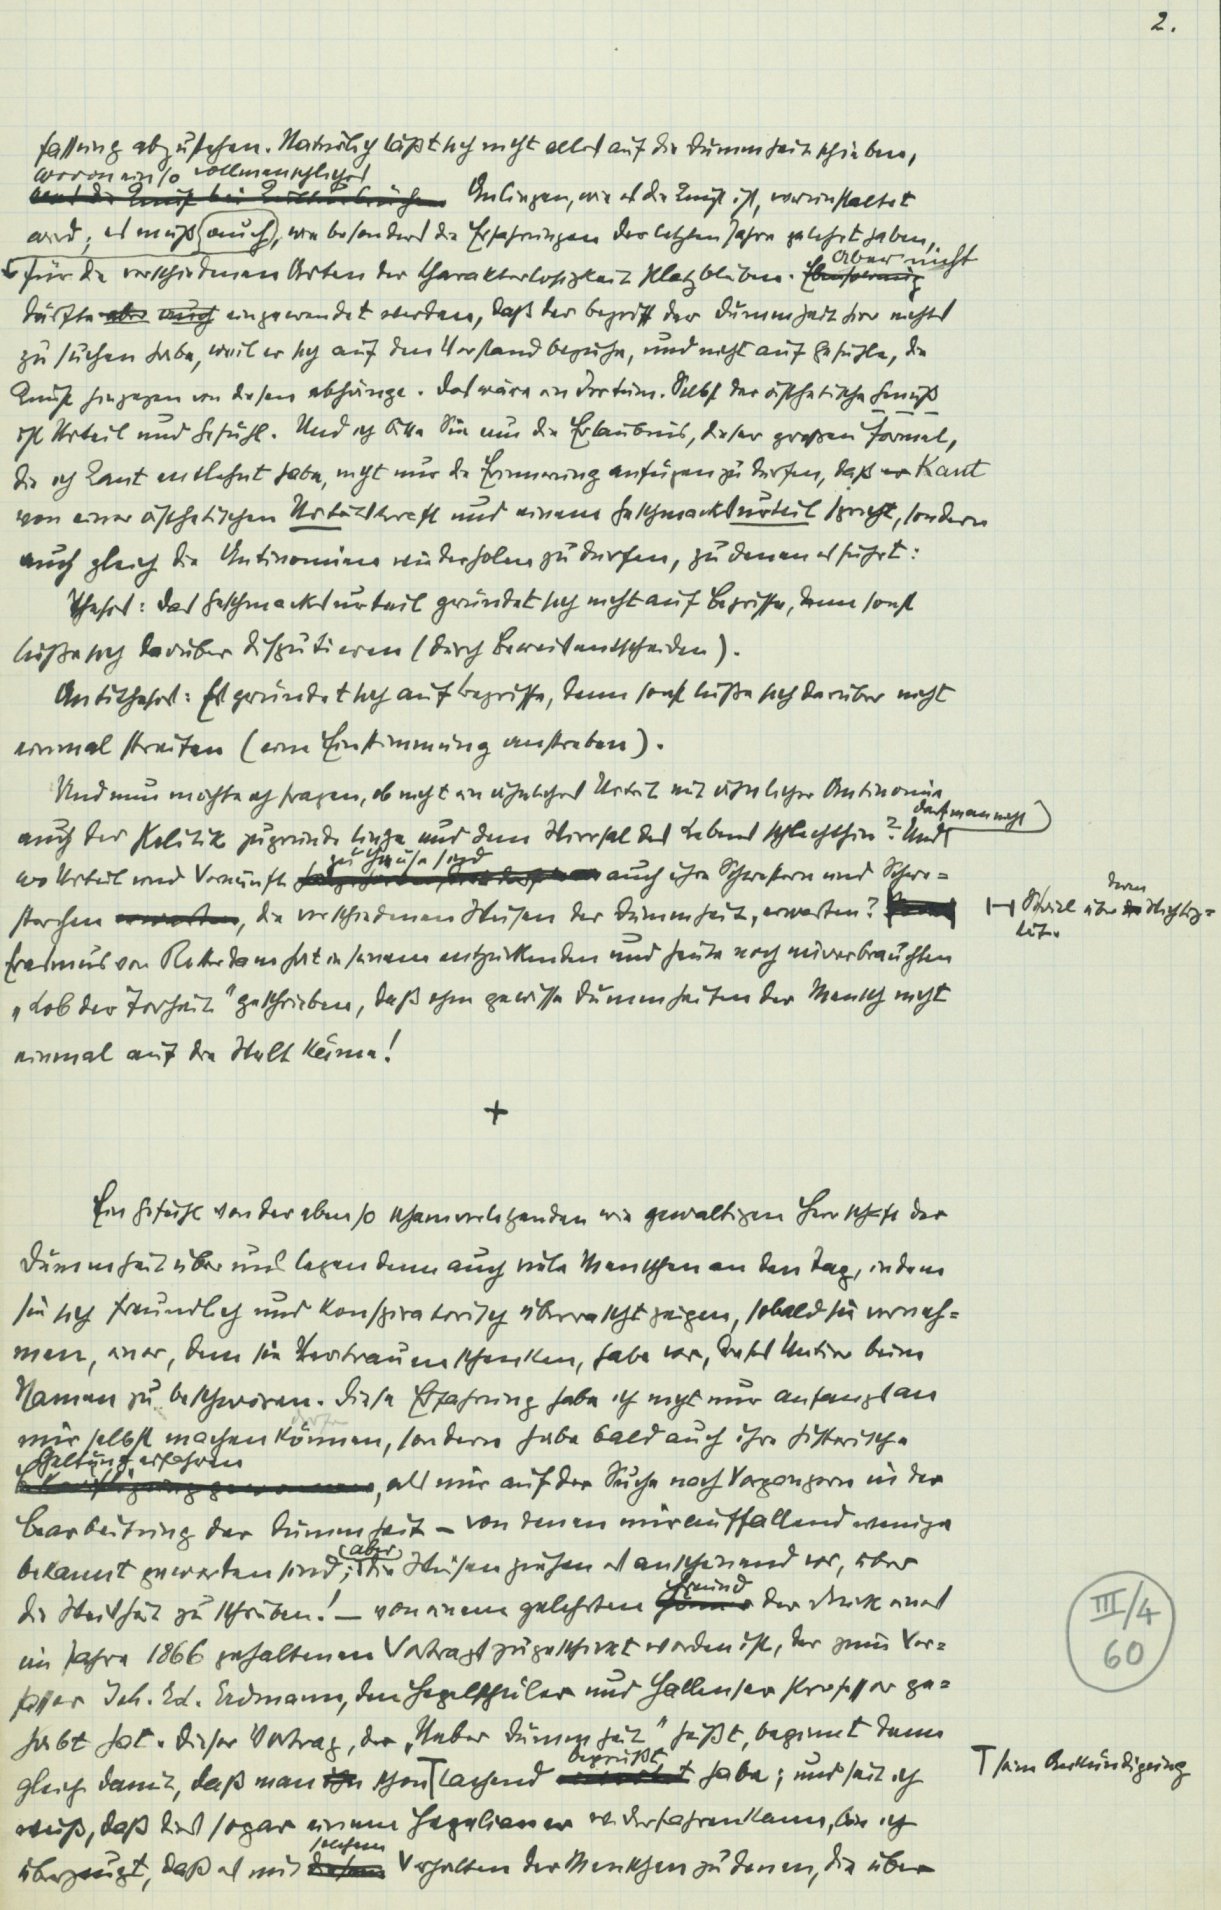 2.
fassung abzusehen. Natürlich läßt sich nicht alles auf die Dummheit schieben,
wovon ein so vollmenschliches
was die Kunst bei Anliegen, wie es die Kunst ist, verunstaltet
wird; es muß auch, wie besonders die Erfahrungen der letzten Jahre gelehrt haben,
aber nicht
für die verschiedenen Arten der Charakterlosigkeit Platz bleiben. Ebensowenig
dürfte aber auch eingewendet werden, daß der Begriff der Dummheit hier nichts
zu suchen habe, weil er sich auf den Verstand beziehe, und nicht auf Gefühle, die
Kunst hingegen von diesen abhänge. Das wäre ein Irrtum. Selbst der ästhetische Genuß
ist Urteil und Gefühl. Und ich bitte Sie um die Erlaubnis, dieser großen Formel,
die ich Kant entlehnt habe, nicht nur die Erinnerung anfügen zu dürfen, daß er Kant
von einer ästhetischen Urteilskraft und einem Geschmacksurteil spricht, sondern
auch gleich die Antinomien wiederholen zu dürfen, zu denen es führt:
Thesis: das Geschmacksurteil gründet sich nicht auf Begriffe, denn sonst
ließe sich darüber disputieren (durch Beweis entscheiden).
Antithesis: Es gründet sich auf Begriffe, denn sonst ließe sich darüber nicht
einmal streiten (eine Einstimmung anstreben).
Und nun möchte ich fragen, ob nicht ein ähnliches Urteil mit ähnlicher Antinomie
darf man nicht
auch der Politik zugrunde liege und dem Wirrsal des Lebens schlechthin? Und
zu Hause sind
wo Urteil und Vernunft auch ihre Schwestern und Schwe=
sterchen erwarten, die verschiedenen Weisen der Dummheit, erwarten?
Soviel über deren die Wichtig=
keit.
Erasmus von Rotterdam hat in seinem entzückenden und heute noch unverbrauchten
„Lob der Torheit" geschrieben, daß ohne gewisse Dummheiten der Mensch nicht
einmal auf die Welt käme!
+
Ein Gefühl von der ebenso schamverletzenden wie gewaltigen Herrschaft der
Dummheit über uns legen denn auch viele Menschen an den Tag, indem
sie sich freundlich und konspiratorisch überrascht zeigen, sobald sie verneh=
men, einer, dem sie Vertrauen schenken, habe vor, dieses Untier beim
Namen zu beschwören. Diese Erfahrung habe ich nicht nur anfangs an
mir selbst machen können, sondern habe bald auch ihre historische
Geltung erfahren
, als mir auf der Suche nach Vorgängern in der
Bearbeitung der Dummheit – von denen mir auffallend wenige
aber
bekannt geworden sind; die Weisen ziehen es anscheinend vor, über
die Weisheit zu schreiben! – von einem gelehrten Freund der Druck eines
im Jahre 1866 gehaltenen Vortrags zugeschickt worden ist, der zum Ver=
fasser Joh. Ed. Erdmann, den Hegelschüler und Hallenser Professor ge=
habt hat. Dieser Vortrag, der „Ueber Dummheit" heißt, beginnt denn
begrüßt
gleich damit, daß man ihn schon lachend habe; und seit ich
seine Ankündigung
weiß, daß dies sogar einem Hegelianer widerfahren kann, bin ich
solchem
überzeugt, daß es mit diesem Verhalten der Menschen zu denen, die über
III/4
60